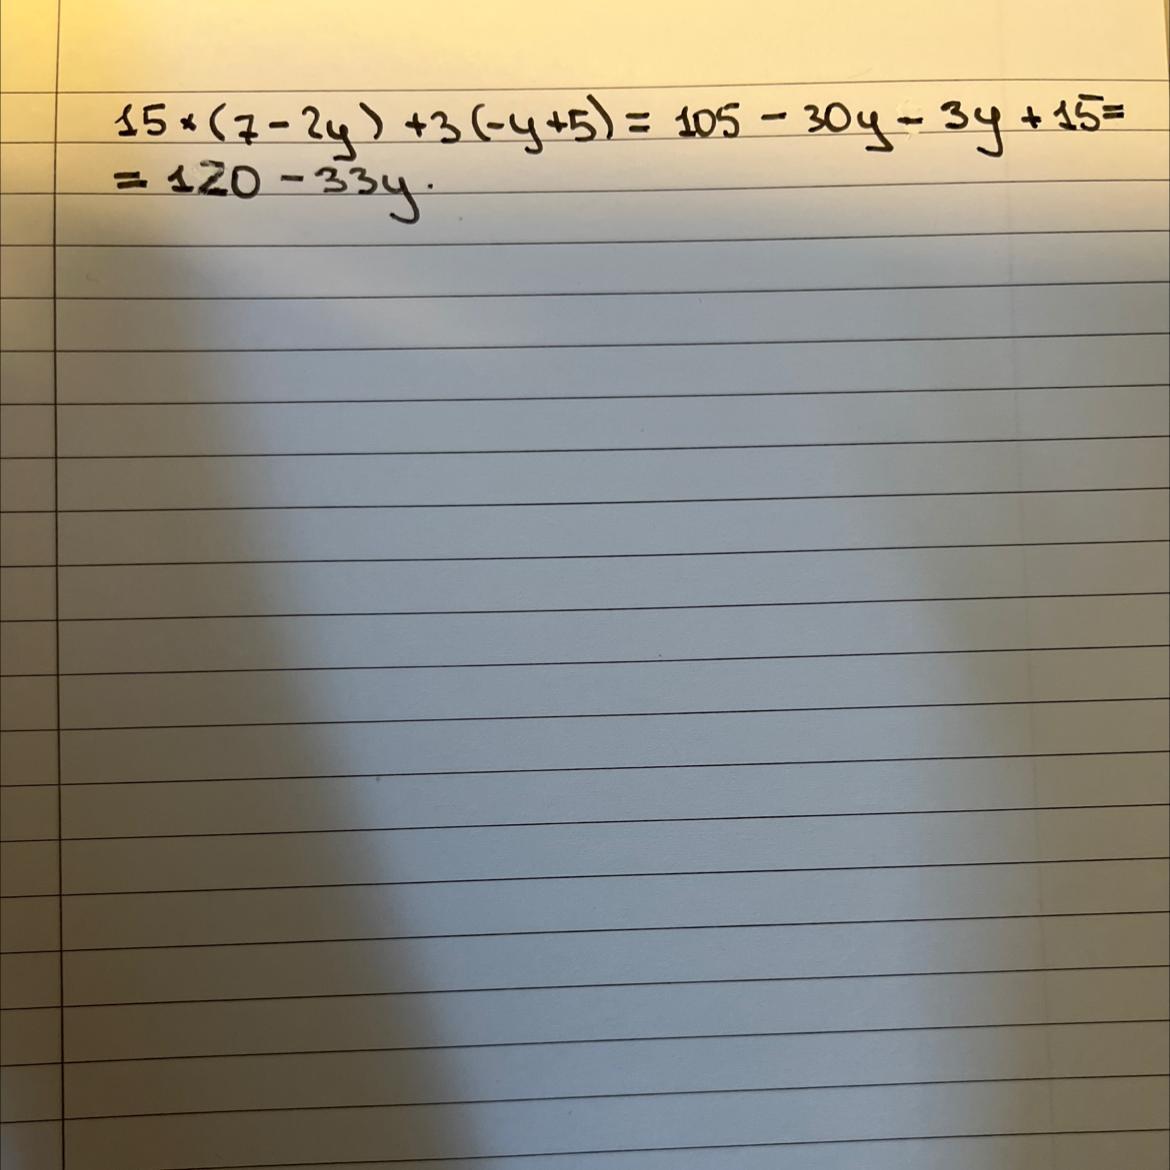 15 * (7 - 2y) + 3(-y+5) = 105 - 30y - 3y + 15 =
= 120 - 33y.